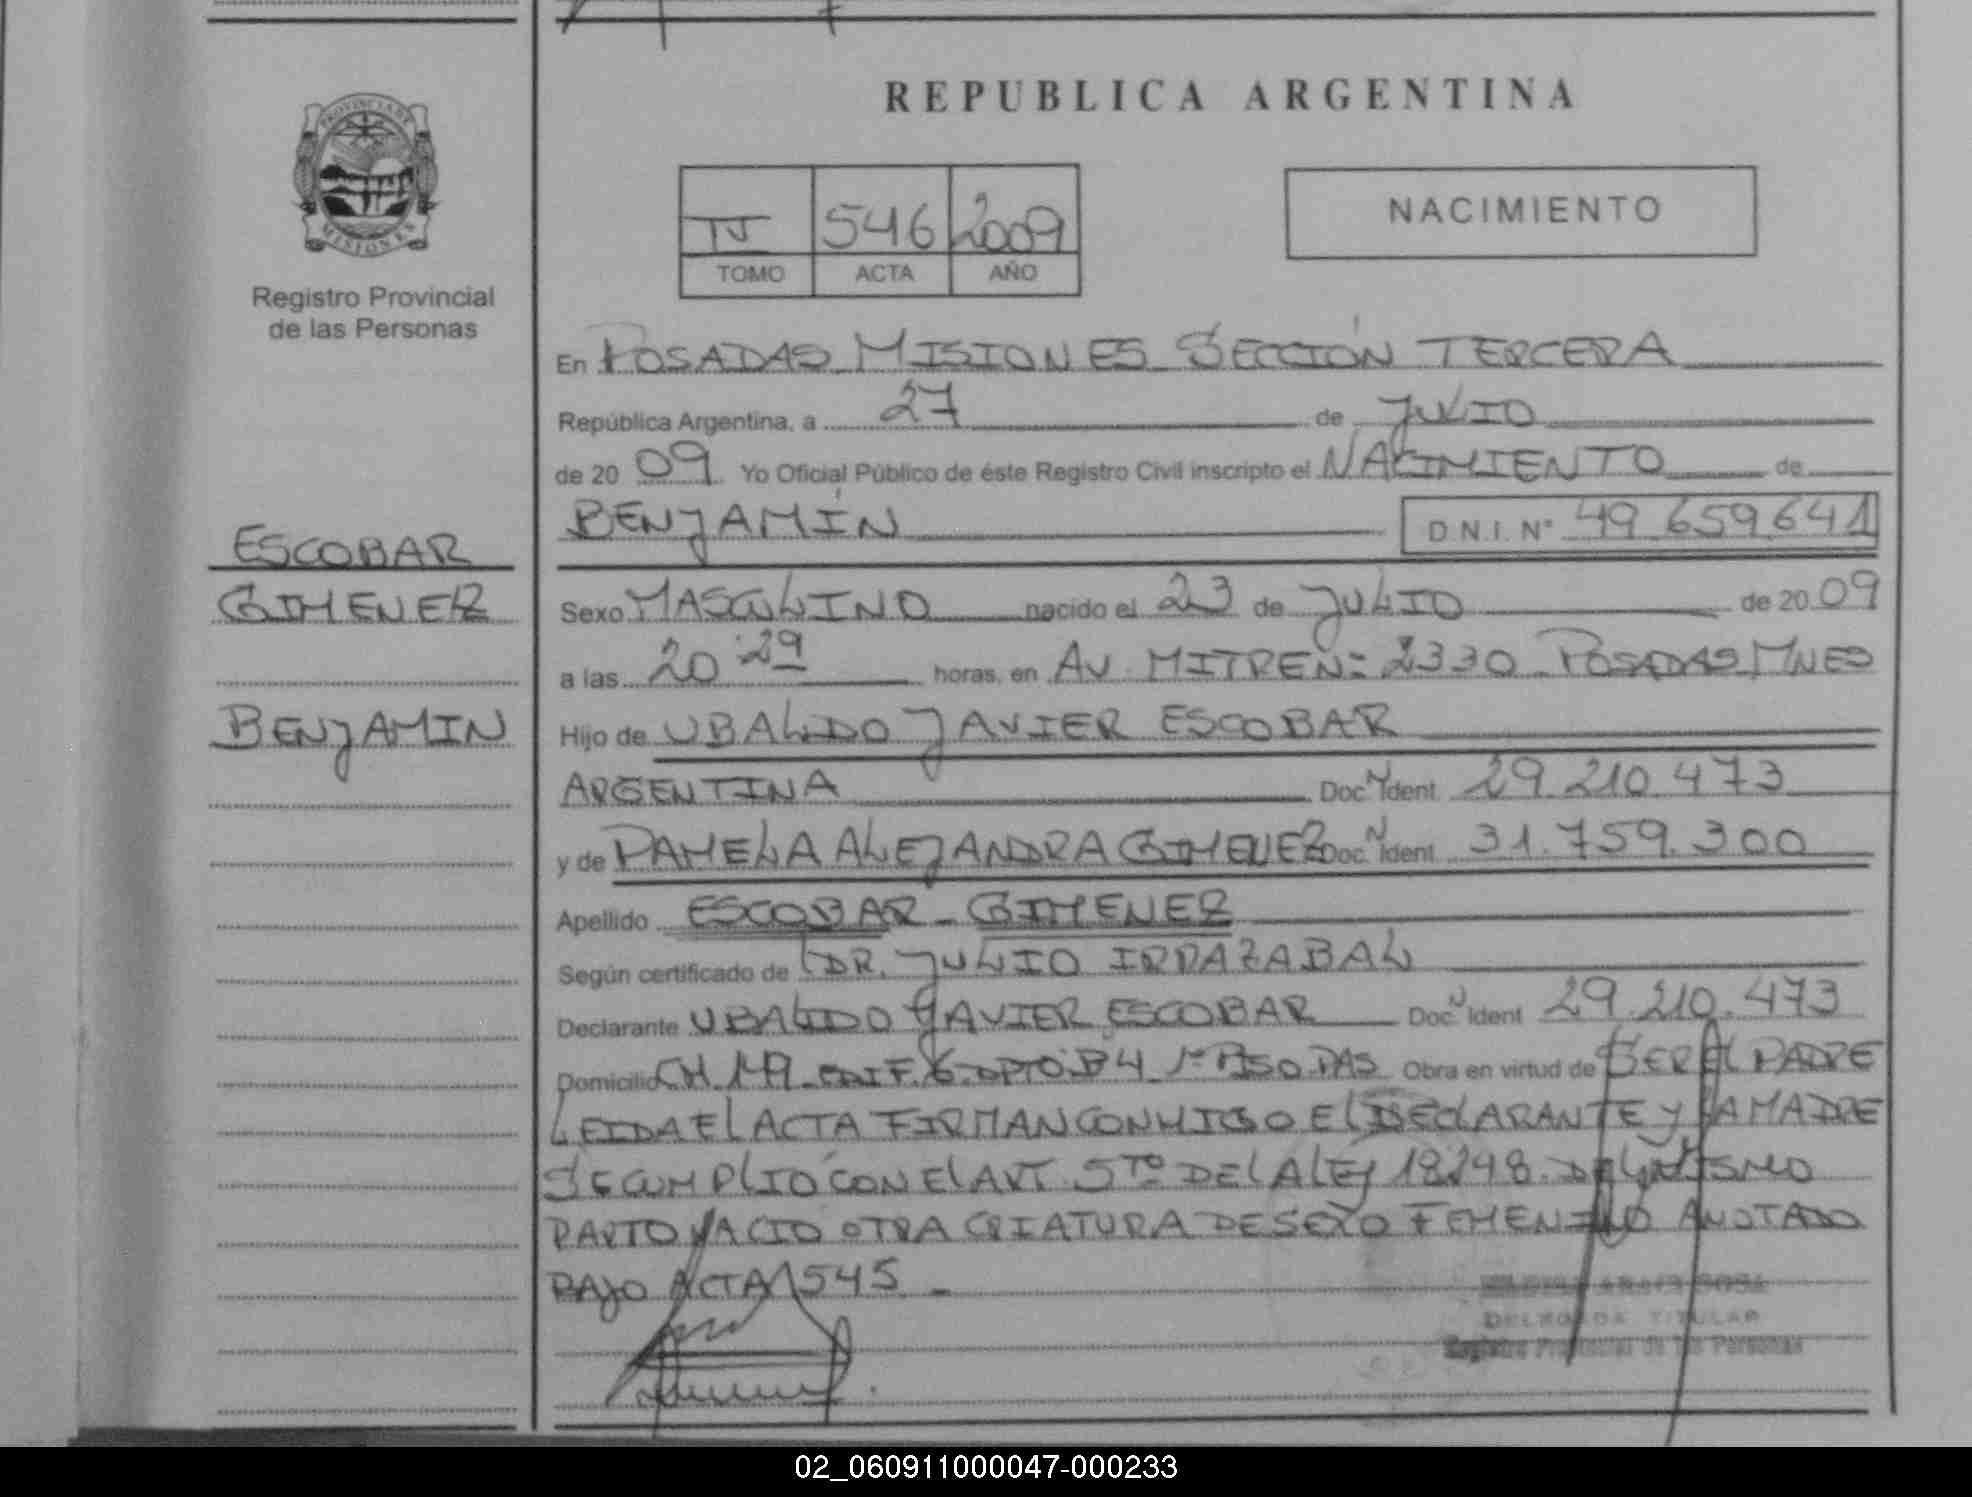 REPUBLICA ARGENTINA
PROVINCIA DE
MISIONES
Registro Provincial
de las Personas
IV 546 2009
TOMO ACTA AÑO
NACIMIENTO
En POSADAS MISIONES SECCIÓN TERCERA
República Argentina, a 27 de JULIO
de 20 09 Yo Oficial Público de éste Registro Civil inscripto el NACIMIENTO de
BENJAMÍN D.N.I. Nº 49.659.641
ESCOBAR
GIMENEZ
BENJAMIN
Sexo MASCULINO nacido el 23 de JULIO de 20 09
a las 20:29 horas, en AV. MITRE Nº 2330 POSADAS MNES
Hijo de UBALDO JAVIER ESCOBAR
ARGENTINA Doc. N Ident. 29.210.473
y de PAMELA ALEJANDRA GIMENEZ Doc. N Ident. 31.759.300
Apellido ESCOBAR - GIMENEZ
Según certificado de DR. JULIO IRRAZABAL
Declarante UBALDO JAVIER ESCOBAR Doc. N Ident 29.210.473
Domicilio CH 149 EDIF. 6 DPTO. B4 1º PISO PAS Obra en virtud de SER EL PADRE
LEIDA El ACTA FIRMAN CONMIGO El DEClARANTE Y lA MADRE
SE CUMPLIO CON El ART. 5TO DE lA lEY 18248. DEL MISMO
PARTO NACIO OTRA CRIATURA DE SEXO FEMENINO ANOTADO
BAJO ACTA 545 -
DELEGADA TITULAR
Registro Provincial de las Personas
02_060911000047-000233